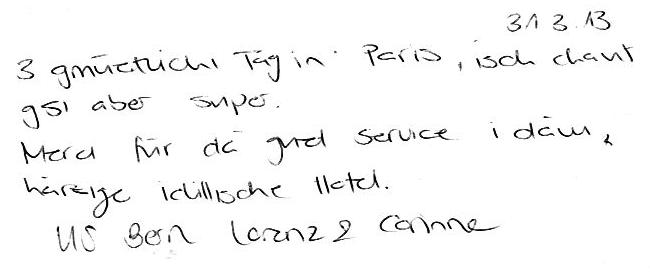 31.3.13
3 gmüetlichi Täg in Paris, isch chaut
gsi aber super.
Merci für dä guet service i däm,
härzige idillische Hotel.
US Bern Lorenz & Corinne